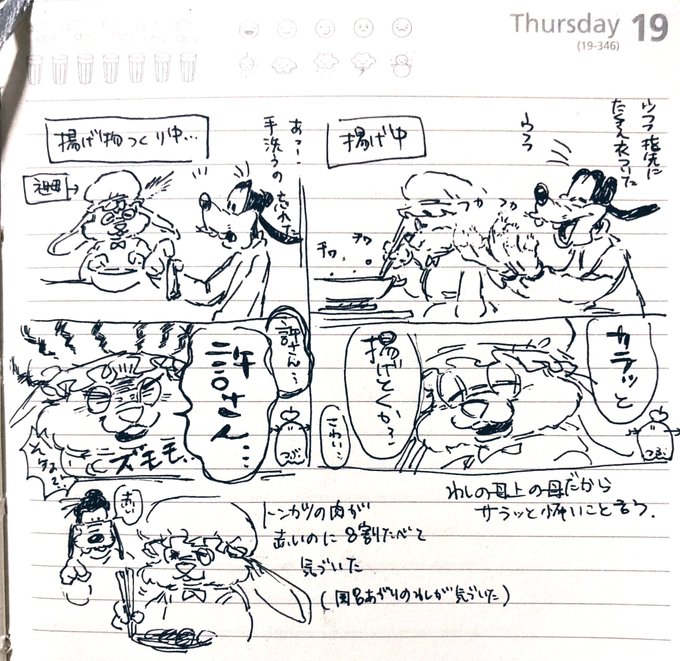 Thursday 19
(19-346)
揚げ物つくり中…
祖母→
あっー!
手洗うの 忘れた
揚げ中
ウフフ 指先に
衣ついた
ウフフ
フカ フカ
チワ チワ
許さん…
許さん…
ズモモ…
カラッと
揚げとくか?
こわい…
わしの母上の母だから
サラッと怖いこと言う.
トンカツの肉が
赤いのに8割たべて
気づいた
(風呂あがりのわしが気づいた)